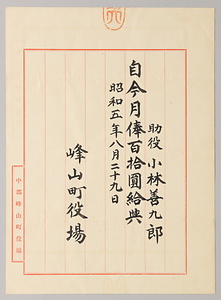 助役 小林善九郎
自今月俸百拾圓給與
昭和五年八月二十九日
峰山町役場
中郡峰山町役場